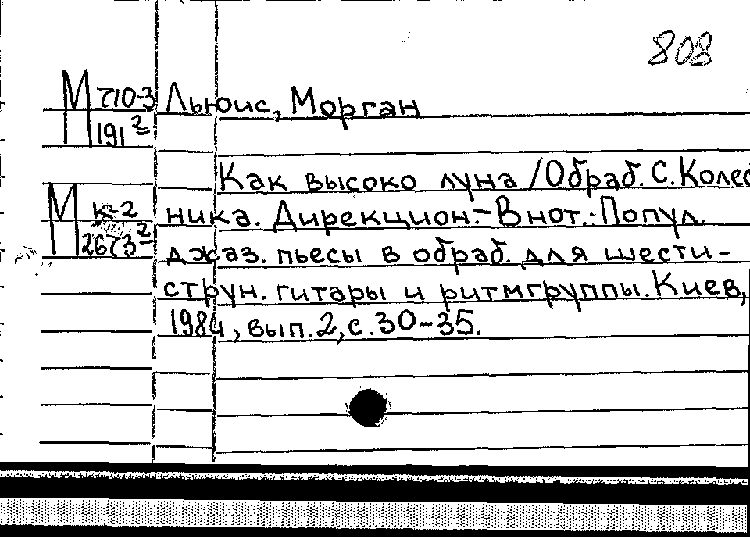 808
М 710-3 Льюис, Морган
191²
Как высоко луна / Обраб. С. Колес
М к-2 ника. Дирекцион.- В нот.: Попул.
2673² джаз. пьесы в обраб. для шести-
струн. гитары и ритмгруппы. Киев,
1984, вып. 2, с. 30-35.